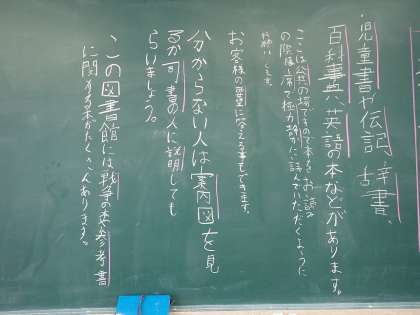 児童書や伝記、辞書、
百科事典、英語の本などがあります。
ここは公共の場ですので本をお読み
の際は席で極力静かに読んでいただくように
お願いします。
お客様の要望に答える事もできます。
分からない人は案内図を見
るか司書の人に説明しても
らいましょう。
この図書館には戦争の本参考書
に関する本がたくさんあります。